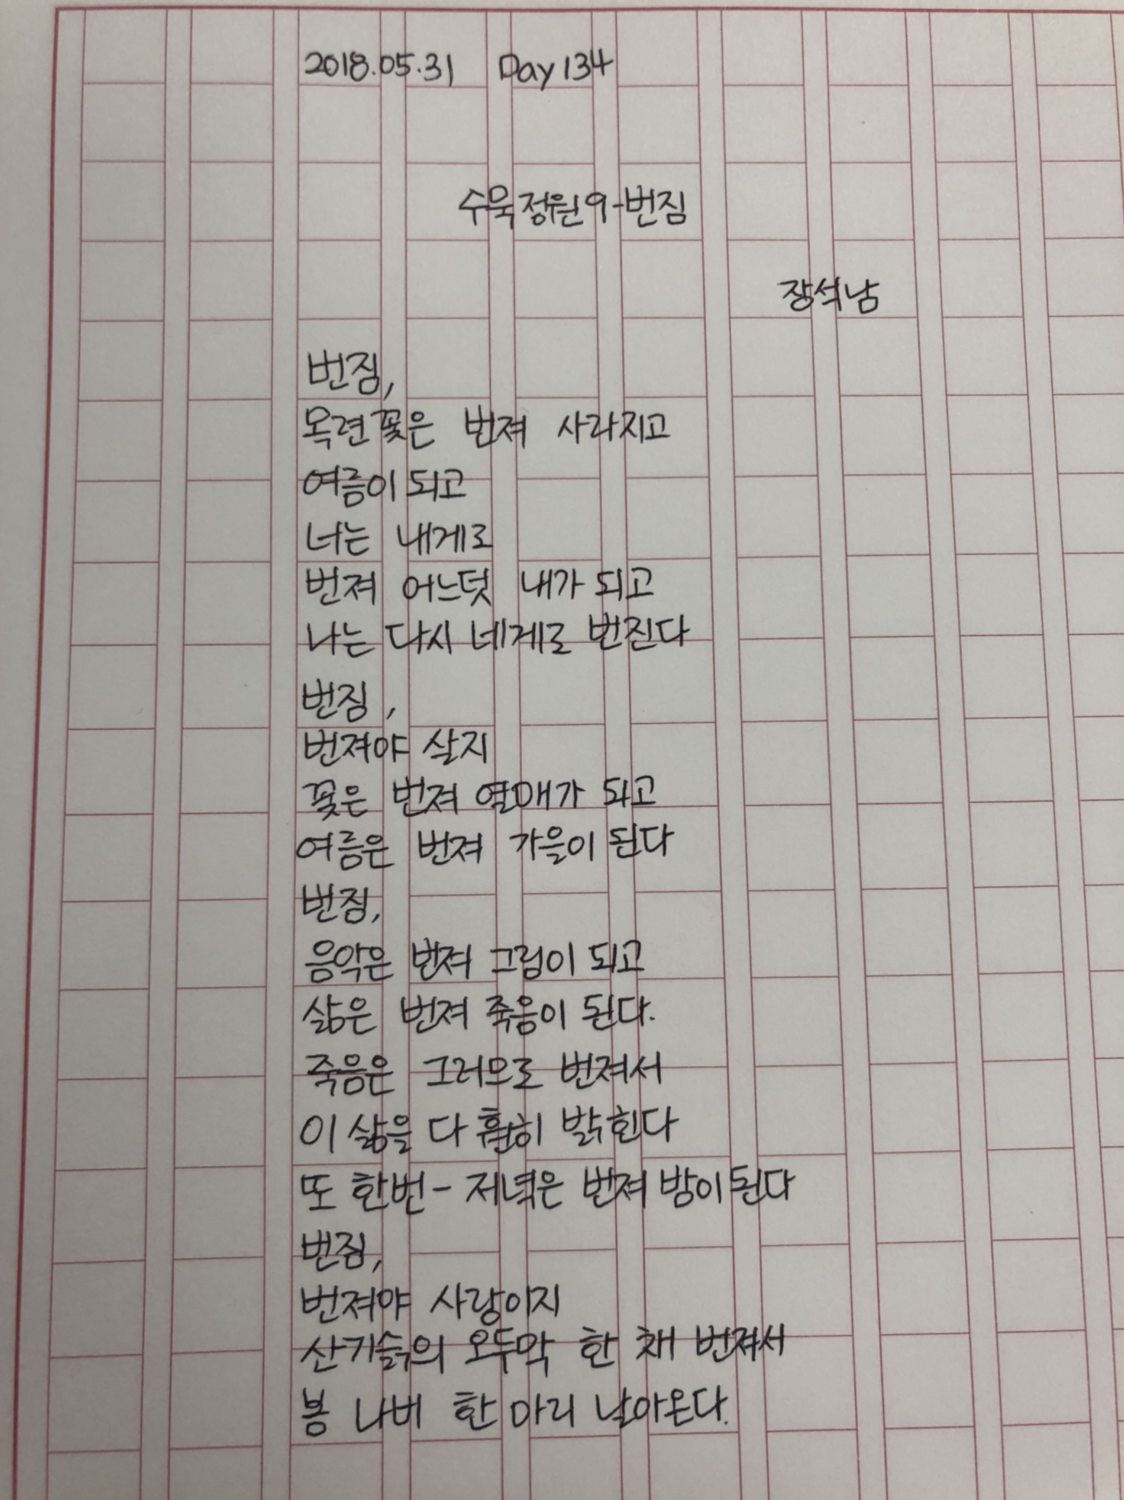 2018.05.31 Day 134
수묵정원9-번짐
장석남
번짐,
목련꽃은 번져 사라지고
여름이 되고
너는 내게로
번져 어느덧 내가 되고
나는 다시 네게로 번진다
번짐,
번져야 살지
꽃은 번져 열매가 되고
여름은 번져 가을이 된다
번짐,
음악은 번져 그림이 되고
삶은 번져 죽음이 된다.
죽음은 그러므로 번져서
이 삶을 다 환히 밝힌다
또 한번- 저녁은 번져 밤이 된다
번짐,
번져야 사랑이지
산기슭의 오두막 한 채 번져서
봄 나비 한 마리 날아온다.